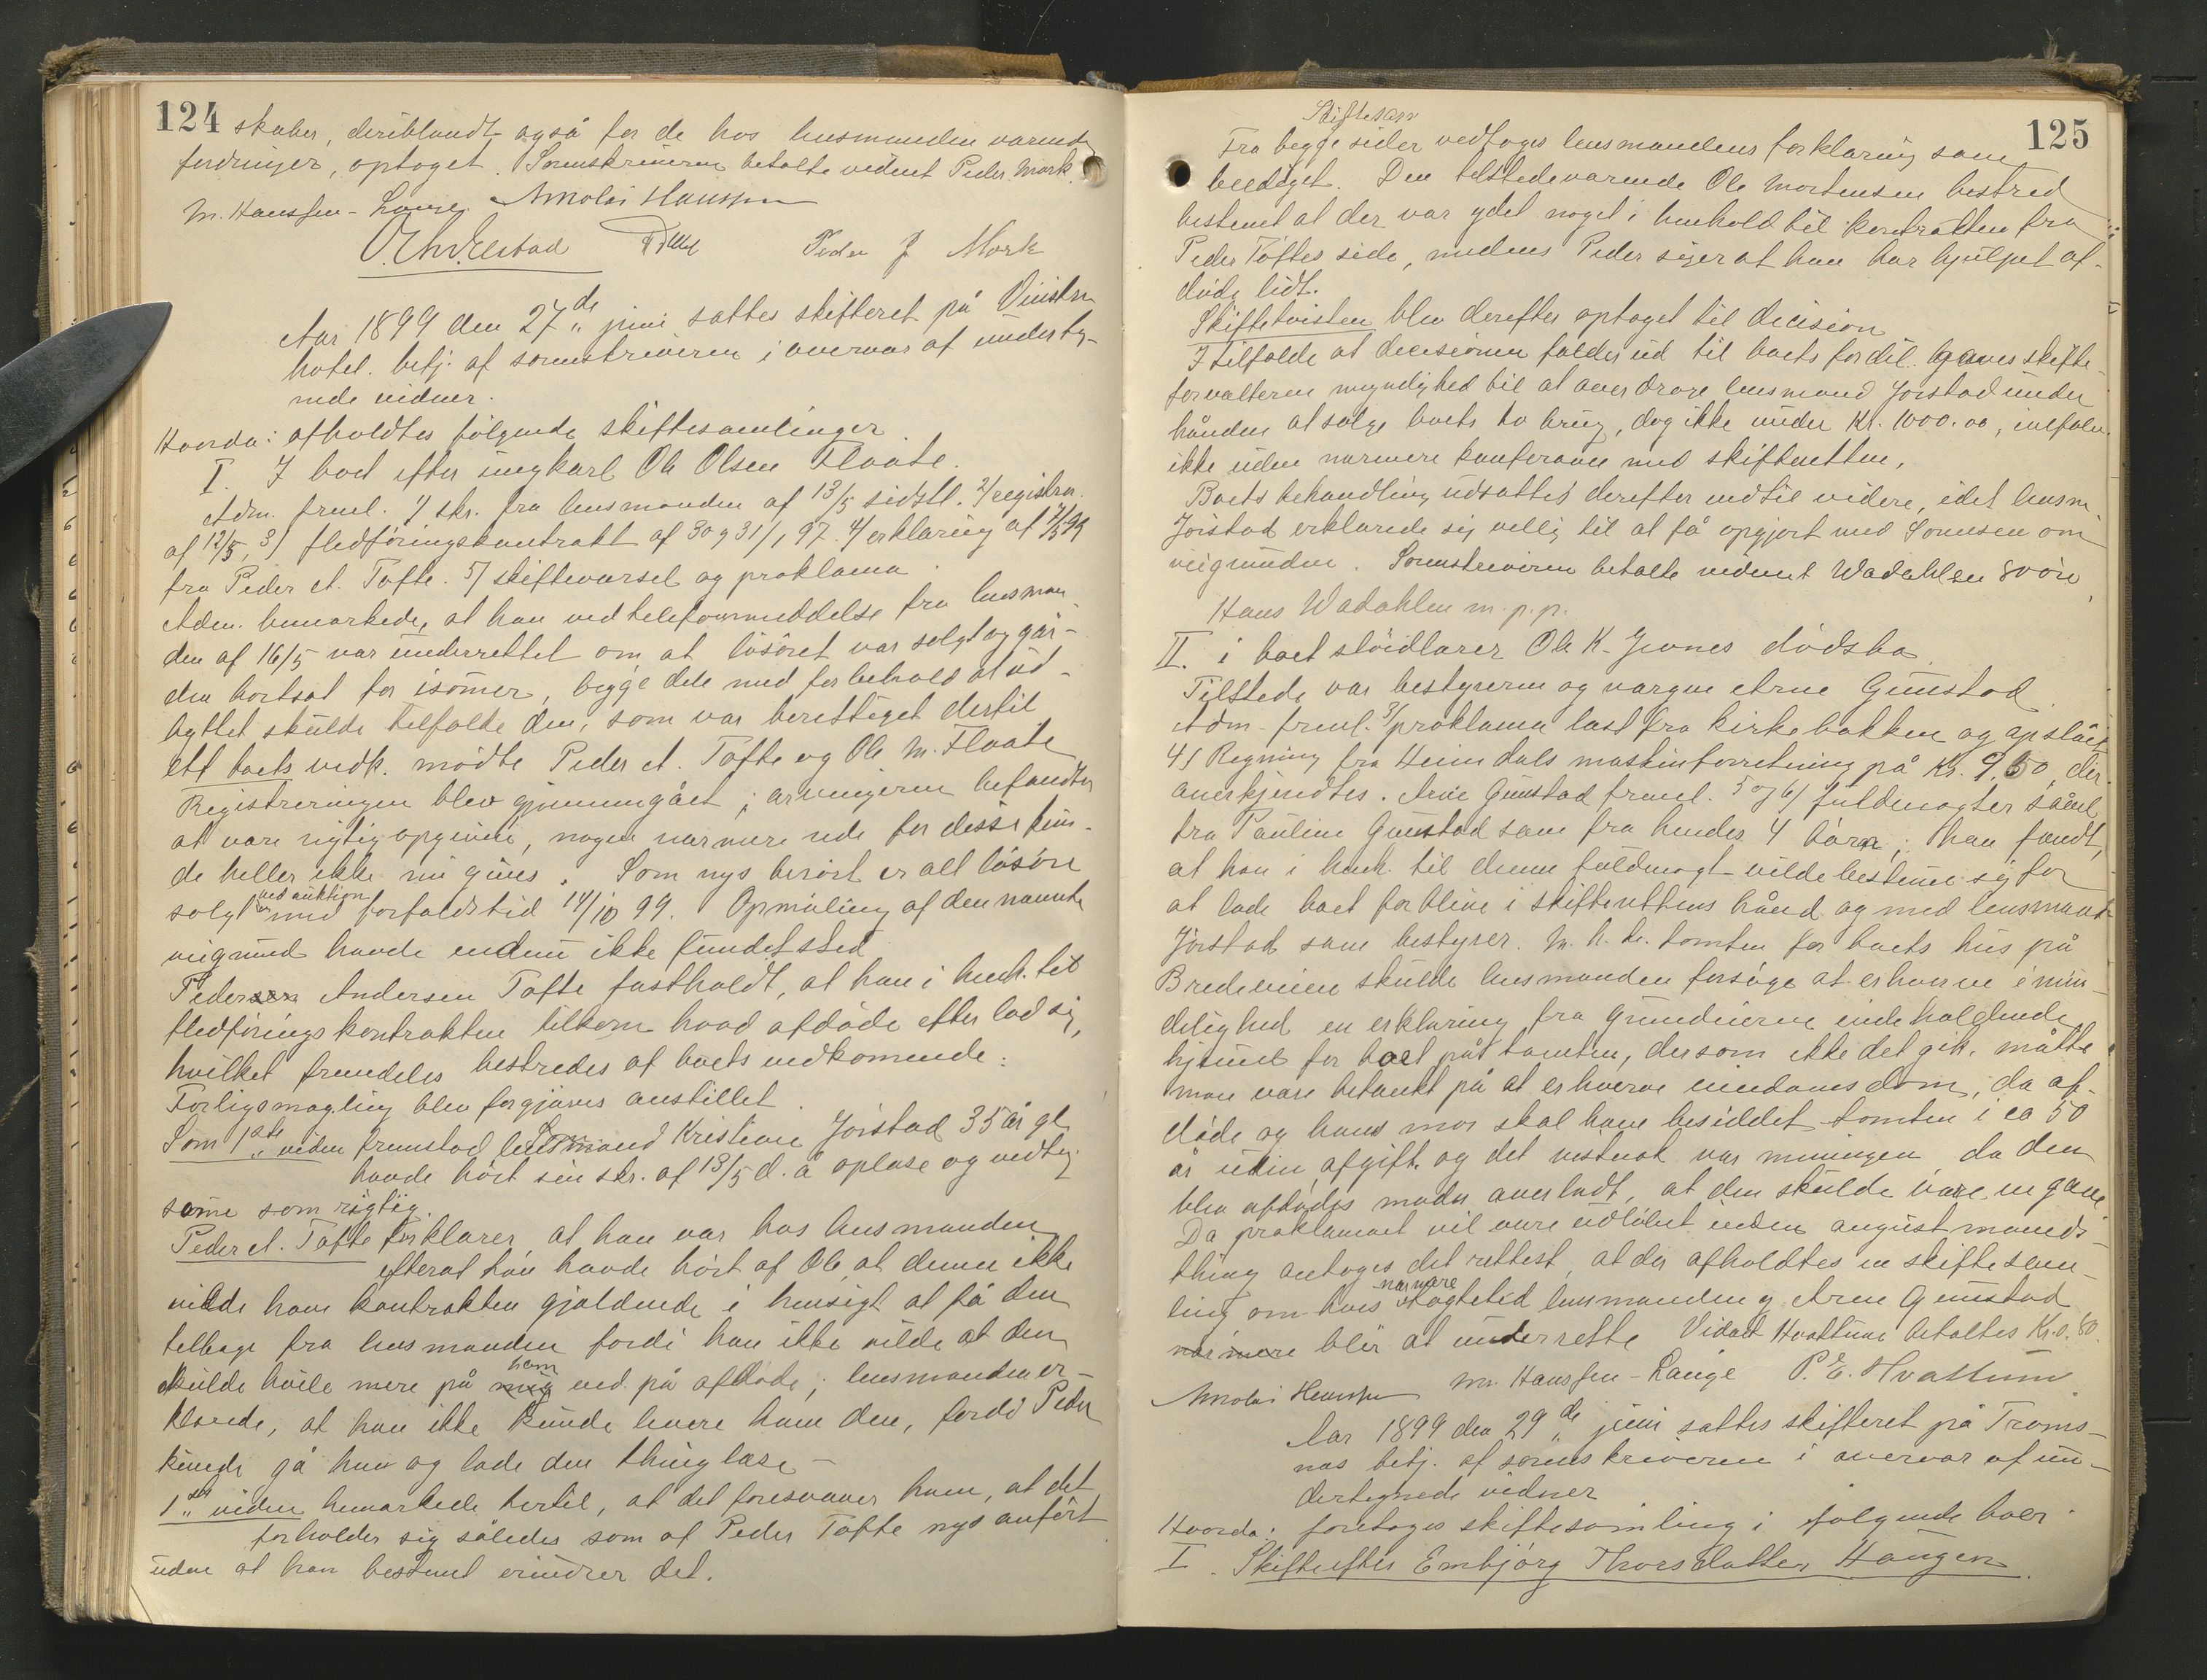 124
skaber, deriblandt også for de hos lensmanden værende
fordringer, optaget. Sorenskriveren betalte vidnet Peder Mork
M. Hanssen-Lauge. Nikolai Hanssen
Peder J Mork
Aar 1899 den 27de juni sattes skifteret på Vinstra
hotel. betj. af sorenskriveren i overvær af underteg-
nede vidner.
Hvorda: afholdtes følgende skiftesamlinger
I. I boet efter ungkarl Ole Olsen Flaate.
Adm. freml. 1/ skr. fra lensmanden af 13/5 sidstl. 2/ registrer.
af 12/5, 3/ fledføringskontrakt af 30 og 31/1 97. 4/ erklæring af 2/5 99
fra Peder A. Tofte. 5/ skiftevarsel og proklama.
Adm. bemærkede, at han ved telefonmeddelse fra lensman-
den af 16/5 var underrettet om at løsøret var solgt og går-
den bortsat for isomer, begge dele med forbehold at ud-
byttet skulde tilfalde den, som var berettiget dertil
Att boets vedk. mødte Peder A. Tofte og Ole M. Flaate
Registreringen blev gjennemgået; arvingerne befandtes
at være rigtig opgivne, nogen nærmere rede for disse kun-
de heller ikke nu gives. Som nys berørt er alt løsøre
solgt ved auktion med forfaldstid 14/10 99. Opmåling af den nævnte
veigrund havde endnu ikke fundet sted
Peder Andersen Tofte fastholdt, at han i henh. til
fledføringskontrakten tilkom hvad afdøde efterlod sig,
hvilket fremdeles bestredes af boets vedkomende.
Forligsmægling blev forgjæves anstillet.
Som 1ste vidne fremstod lensmand Kristian Jørstad 35 år gl.
havde hørt sin skr. af 13/5 d. å oplæse og vedtog
same som rigtig.
Peder A. Tofte forklarer at han var hos lensmanden
efterat han havde hørt af Ole at denne ikke
vilde have kontrakten gjældende i hensigt at få den
tilbage fra lensmanden fordi han ikke vilde at den
skulde hvile mere på ham end på afdøde; lensmanden er-
klærede, at han ikke kunde levere ham den, fordi Peder
kunde gå hen og lade den thinglæse –
1ste vidne bemærkede hertil, at det foresvæver ham, at det
forholder sig således som af Peder Tofte nys anført
uden at han bestemt erindrer det.
125
Skiftesam
Fra begge sider vedtoges lensmandens forklaring som
beediget. Den tilstedeværende Ole Mortensen bestred
bestemt at der var ydet noget i henhold til kontrakten fra
Peder Toftes side, medens Peder siger at han har hjulpet af-
døde lidt.
Skiftetvisten blev derefter optaget til decision
I tilfælde at decisionen falder ud til boets fordel gaves skifte-
forvalteren myndighed til at overdrage lensmand Jørstad under
hånden at sælge boets to brug, dog ikke under Kr. 1000.00, ialfald
ikke uden nærmere konferance med skifteretten.
Boets behandling udsattes derefter indtil videre, idet lensm.
Jørstad erklærede sig villig til at få opgjort med Sonesen om
veigrunden. Sorenskriveren betalte vidnet Wadahlen 80 øre
Hans Wadahlen m.p.p.
II. i boet sløidlærer Ole K. Jevnes dødsbo.
Tilstede var bestyreren og værgen Arne Gunstad
Adm. freml. 3/ proklama læst fra kirkebakken og opslået
4/ Regning fra Heimdals maskinforretning på Kr. 9,50, der
anerkjendtes. Arne Gunstad freml. 5 og 6/ fuldmagter såvel
fra Pauline Gunstad som fra hendes 4 børn; han fandt,
at han i henh. til denne fuldmagt vilde bestemme sig for
at lade boet forblive i skifterettens hånd og med lensmand
Jørstad som bestyrer. M. h. t. tomten for boets hus på
Bredeveien skulde lensmanden forsøge at erhverve i min-
delighed en erklæring fra grundeierne indeholdende
hjemel for boet på tomten, dersom ikke det gik, måtte
man være betænkt på at erhverve eiendomsdom, da af-
døde og hans mor skal have besiddet tomten i ca 50
år uden afgift og det vistnok var meningen, da den
blev afdødes moder overladt, at den skulde være en gave
Da proklamaet vil være udløbet inden august måneds
thing antoges det rettest, at der afholdtes en skiftesam-
ling om hvis nærmere tagtetid lensmanden og Arne Gunstad
blir at underrette Vidnet Hvattum betaltes Kr. 0.80.
Nikolai Hanssen M. Hanssen-Lauge P. E. Hvattum.
Aar 1899 den 29de juni sattes skifteret på Troms-
næs betj. af sorenskriveren i overvær af un-
dertegnede vidner
Hvorda: foretoges skiftesamling i følgende boer.
I. Skifte efter Embjørg Thorsdatter Haugen.